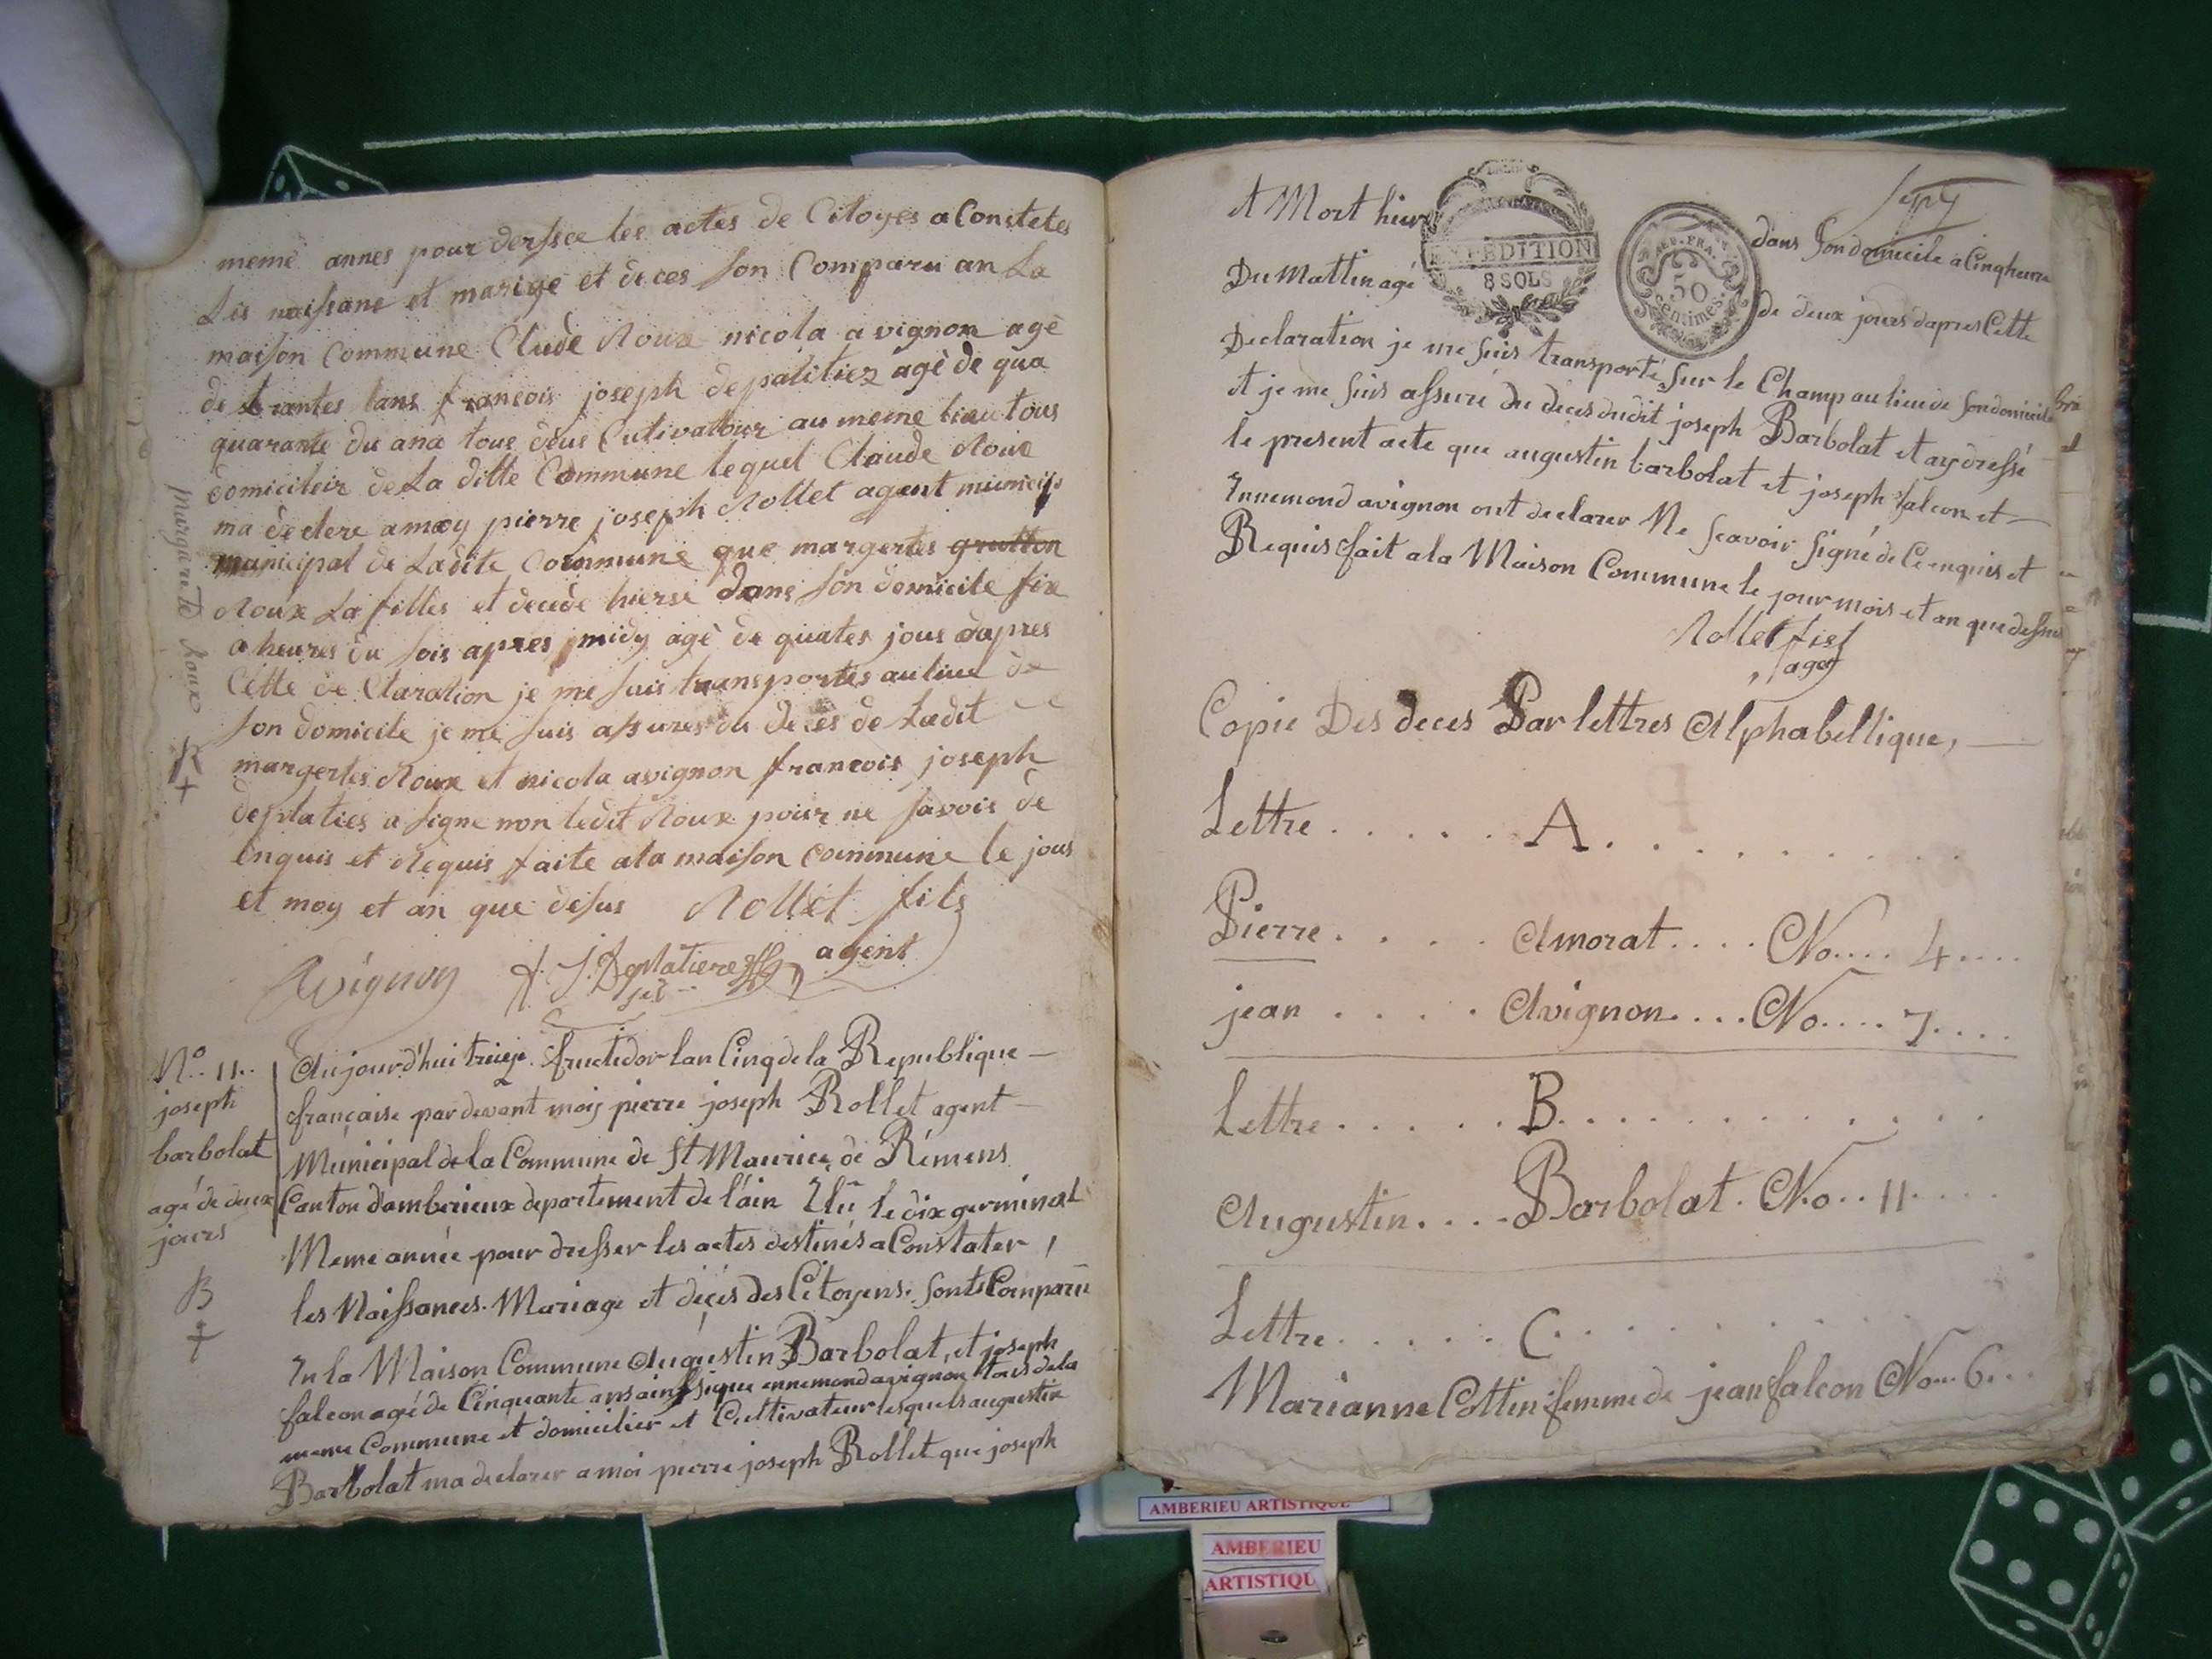 meme annes pour dersser les actes de Citoyes a Constetes
Lis naissane et marige et deces son Comparu an La
maison Commune Clude Roux nicola avignon agé
de trantes tans francois joseph depalitiez agé de qua
quarante du ans tous deus Cultivattour au meme lieu tous
domicileir de La ditte Commune lequel Claude Roux
ma declere a moy pierre joseph Rollet agent municip
municipal de Ladite Commune que margertes grutton
Roux La filles et decede hierse dans son domicile six
a heures du sois apres midy agé de quates jous dapres
Cette de Claration je me suis transportes au liue de
son domicile je me suis assures du deces de Ladit
margertes Roux et nicola avignon francois joseph
deplaties a signe non ledit Roux pour ne savois de
enquis et Requis faite a la maison commune le jous
et moy et an que desus Rollet fils
agent
Avignon f. J. Deplatiere
marguerite Roux
R
+
No.. 11..
joseph
barbolat
agé de deux
jours
B
+
Aujourd'hui treize fructidor lan Cinq de la Republique
française par devant moy pierre joseph Rollet agent
Municipal de la Commune de St Maurice de Rémens
Canton damberieux departement de l'ain Elû le dix germinal
Meme année pour dresser les actes destinés a Constater
les Naissances. Mariage et décès des Citoyens. sont Comparû
En la Maison Commune Augustin Barbolat, et joseph
falcon agé de Cinquante ans ainssique ennemond avignon tous de la
meme Commune et domicilier et Cultivateur lesquels augustin
Barbolat ma declarer a moi pierre joseph Rollet que joseph
et Mort hier dans son domicile a Cinq heure
EXPEDITION
8 SOLS
REP. FRA.
50
centimes.
Du Mattin agé de deux jours dapres Cette
Declaration je me suis transporté sur le Champ au lieu de son domicile
et je me suis assuré du deces dudit joseph Barbolat et ay dressé
le present acte que augustin barbolat et joseph falcon et
Ennemond avignon ont declarer Ne scavoir signé de Ce enquis et
Requis fait a la Maison Commune le jour mois et an que dessus
Rollet fils
agent
Copie Des deces Par lettres Alphabettique,
Lettre . . . . . A . . . . . . . . .
Pierre . . . . Amorat . . . . No . . . . 4 . . . .
jean . . . . Avignon . . . . No . . . . 7 . . . .
Lettre . . . . . B . . . . . . . . .
Augustin . . . . Barbolat . No . . 11 . . . .
Lettre . . . . . C . . . . . . . . .
Marianne Cottin femme de jean falcon No . . . 6 . . .
AMBERIEU ARTISTIQUE
AMBERIEU
ARTISTIQU